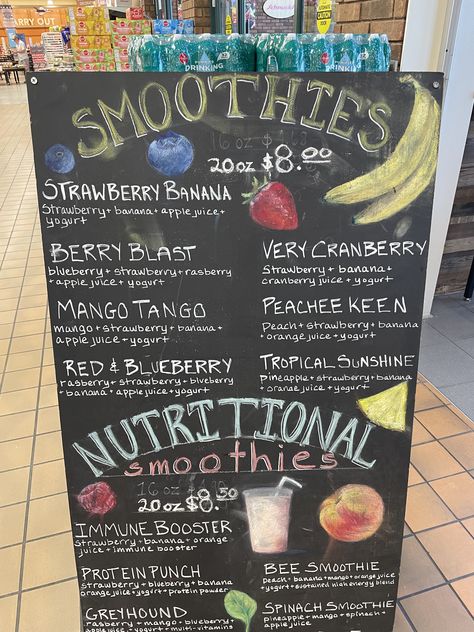 CARRY OUT
DRINKING
SMOOTHIES
16 oz
20 oz $8.00
STRAWBERRY BANANA
Strawberry + banana + apple juice +
yogurt
BERRY BLAST
blueberry + strawberry + rasberry
+ apple juice + yogurt
VERY CRANBERRY
Strawberry + banana +
cranberry juice + yogurt
MANGO TANGO
mango + strawberry + banana +
apple juice + yogurt
PEACHEE KEEN
Peach + strawberry + banana
+ orange juice + yogurt
RED & BLUEBERRY
rasberry + strawberry + blueberry
+ banana + apple juice + yogurt
TROPICAL SUNSHINE
pineapple + strawberry + banana
+ orange juice + yogurt
NUTRITIONAL
smoothies
16 oz
20 oz $8.50
IMMUNE BOOSTER
Strawberry + banana + orange
juice + immune booster
PROTEIN PUNCH
strawberry + blueberry + banana
orange juice + yogurt + protein powder
GREYHOUND
rasberry + mango + blueberry
apple juice + yogurt + multi-vitamins
BEE SMOOTHIE
Peach + banana + mango + orange juice
+ yogurt + sustained high energy blend
SPINACH SMOOTHIE
pineapple + mango + spinach
+ apple juice + yogurt